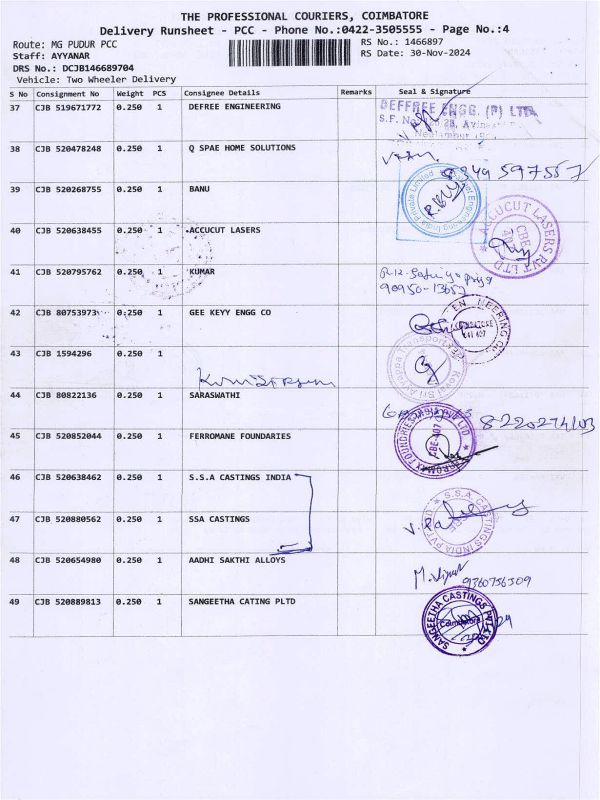 THE PROFESSIONAL COURIERS, COIMBATORE
Delivery Runsheet - PCC - Phone No.:0422-3505555 - Page No.:4
Route: MG PUDUR PCC
RS No.: 1466897
Staff: AYYANAR
RS Date: 30-Nov-2024
DRS No.: DCJB146689704
Vehicle: Two Wheeler Delivery
S No Consignment No Weight PCS Consignee Details Remarks Seal & Signature
37 CJB 519671772 0.250 1 DEFREE ENGINEERING
DEFFREE ENGG. (P) LTD.
38 CJB 520478248 0.250 1 Q SPAE HOME SOLUTIONS
39 CJB 520268755 0.250 1 BANU
40 CJB 520638455 0.250 1 ACCUCUT LASERS
ACCUCUT LASERS PVT LTD
41 CJB 520795762 0.250 1 KUMAR
90950-13657
42 CJB 80753973 0.250 1 GEE KEYY ENGG CO
43 CJB 1594296 0.250 1
44 CJB 80822136 0.250 1 SARASWATHI
8220274103
45 CJB 520852044 0.250 1 FERROMANE FOUNDARIES
46 CJB 520638462 0.250 1 S.S.A CASTINGS INDIA
47 CJB 520880562 0.250 1 SSA CASTINGS
S.S.A. CASTINGS INDIA PVT LTD
48 CJB 520654980 0.250 1 AADHI SAKTHI ALLOYS
9360756309
49 CJB 520889813 0.250 1 SANGEETHA CATING PLTD
SANGEETHA CASTINGS PVT LTD
Coimbatore